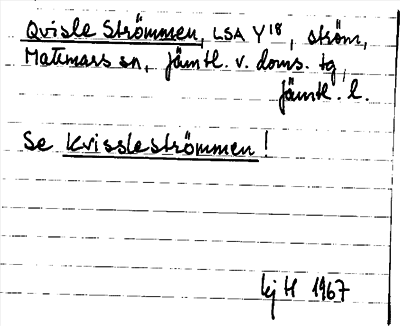 Qvisle Strömmen, LSA Y18, ström,
Mattmars sn, Jämtl. v. doms. tg,
Jämtl. l.
Se Kvissleströmmen!
Lj H 1967